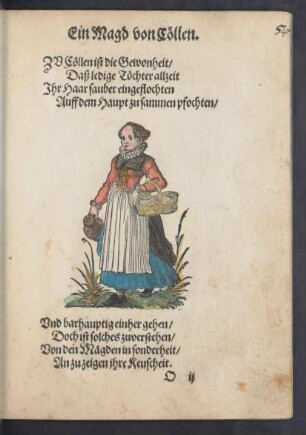 Ein Magd von Cöllen.
ZV Cöllen ist die Gewonheit/
Daß ledige Töchter allzeit
Ihr Haar sauber eingeflochten
Auff dem Haupt zusammen pfochten/
Vnd barhauptig einher gehen/
Doch ist solches zuverstehen/
Von den Mägden in sonderheit/
An zu zeigen ihre Keuscheit.
O ij